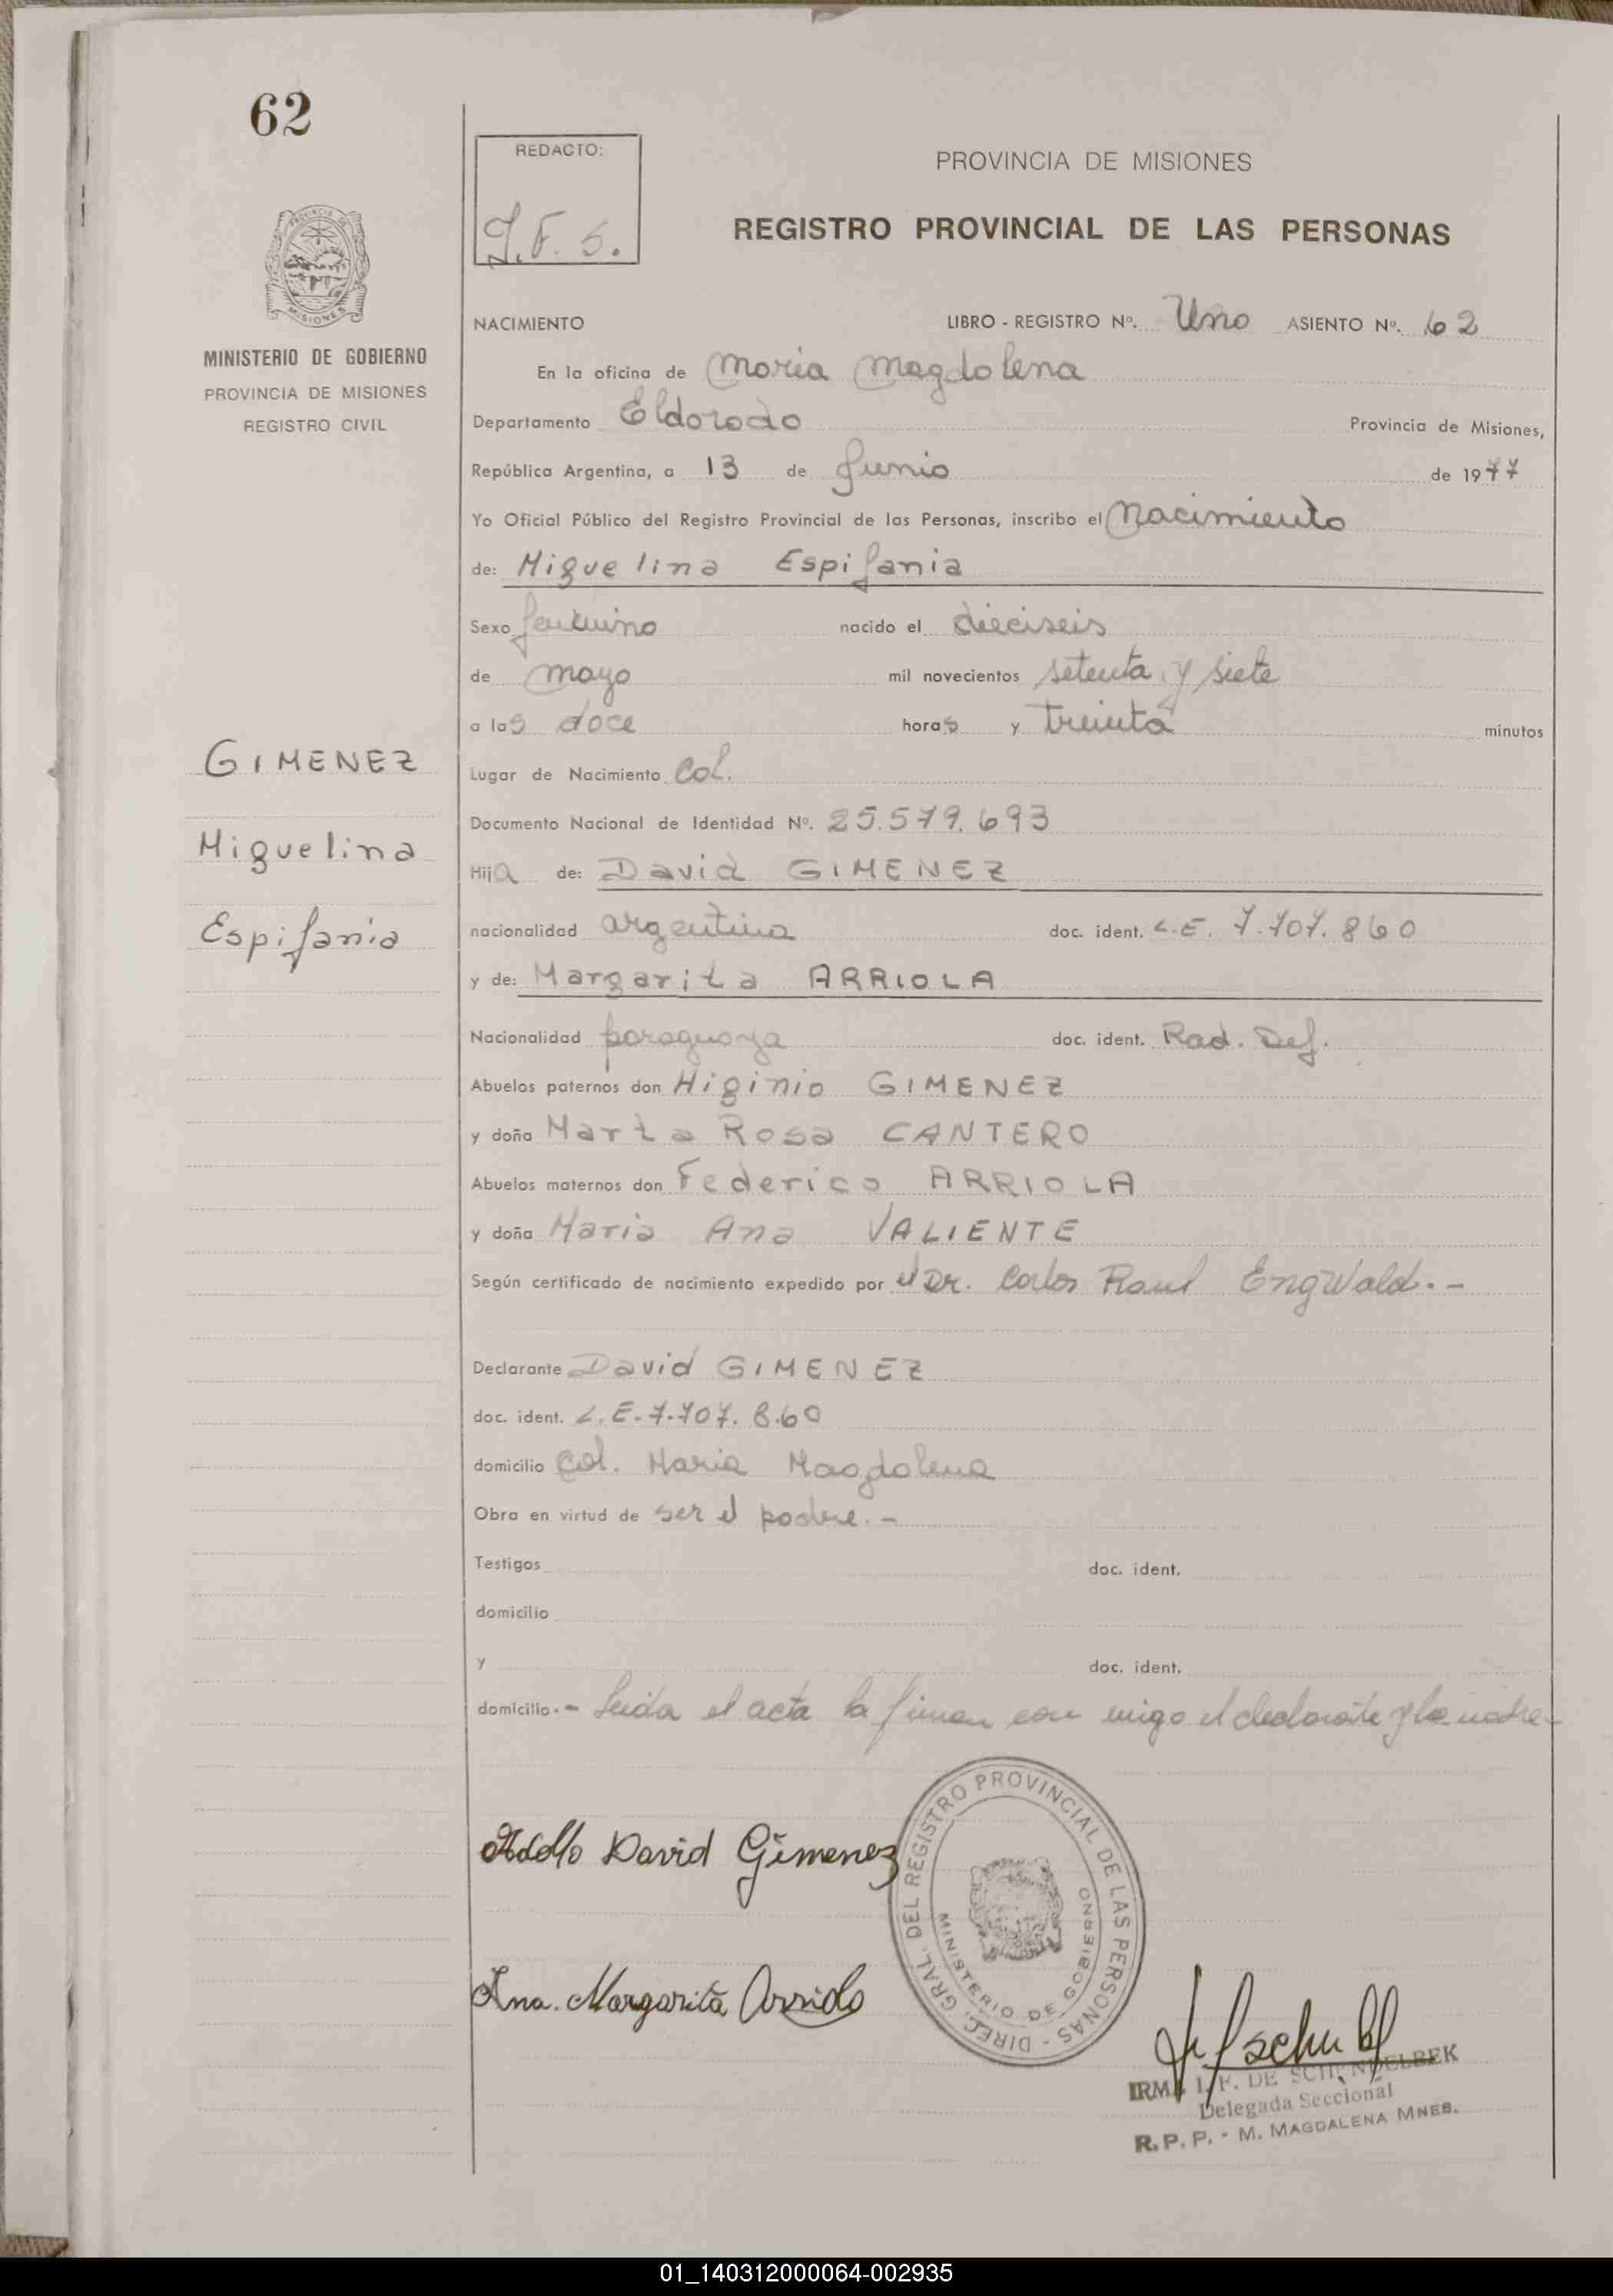 62
REDACTO:
J.F.S.
PROVINCIA DE MISIONES
REGISTRO PROVINCIAL DE LAS PERSONAS
PROVINCIA DE
MISIONES
MINISTERIO DE GOBIERNO
PROVINCIA DE MISIONES
REGISTRO CIVIL
GIMENEZ
Miguelina
Espifania
NACIMIENTO LIBRO - REGISTRO Nº. Uno ASIENTO Nº. 62
En la oficina de Maria Magdalena
Departamento Eldorado Provincia de Misiones,
República Argentina, a 13 de Junio de 1977
Yo Oficial Público del Registro Provincial de las Personas, inscribo el Nacimiento
de: Miguelina Espifania
Sexo femenino nacido el dieciseis
de mayo mil novecientos setenta y siete
a las doce horas y treinta minutos
Lugar de Nacimiento Col.
Documento Nacional de Identidad Nº. 25.579.693
Hija de: David GIMENEZ
nacionalidad argentina doc. ident. L.E. 7.707.860
y de: Margarita ARRIOLA
Nacionalidad paraguaya doc. ident. Rad. Def.
Abuelos paternos don Higinio GIMENEZ
y doña Marta Rosa CANTERO
Abuelos maternos don Federico ARRIOLA
y doña Maria Ana VALIENTE
Según certificado de nacimiento expedido por el Dr. Carlos Raul Engwald.-
Declarante David GIMENEZ
doc. ident. L.E-7.707.8.60
domicilio Col. Maria Magdalena
Obra en virtud de ser el padre.-
Testigos doc. ident.
domicilio
y doc. ident.
domicilio.- Leida el acta la firman con migo el declarante y la madre-
Adolfo David Gimenez
Ana. Margarita Arriola
DIREC. GRAL. DEL REGISTRO PROVINCIAL DE LAS PERSONAS -
MINISTERIO DE GOBIERNO
IRMA I. F. DE SCHENDELBEK
Delegada Seccional
R. P. P. - M. MAGDALENA MNES.
01_140312000064-002935